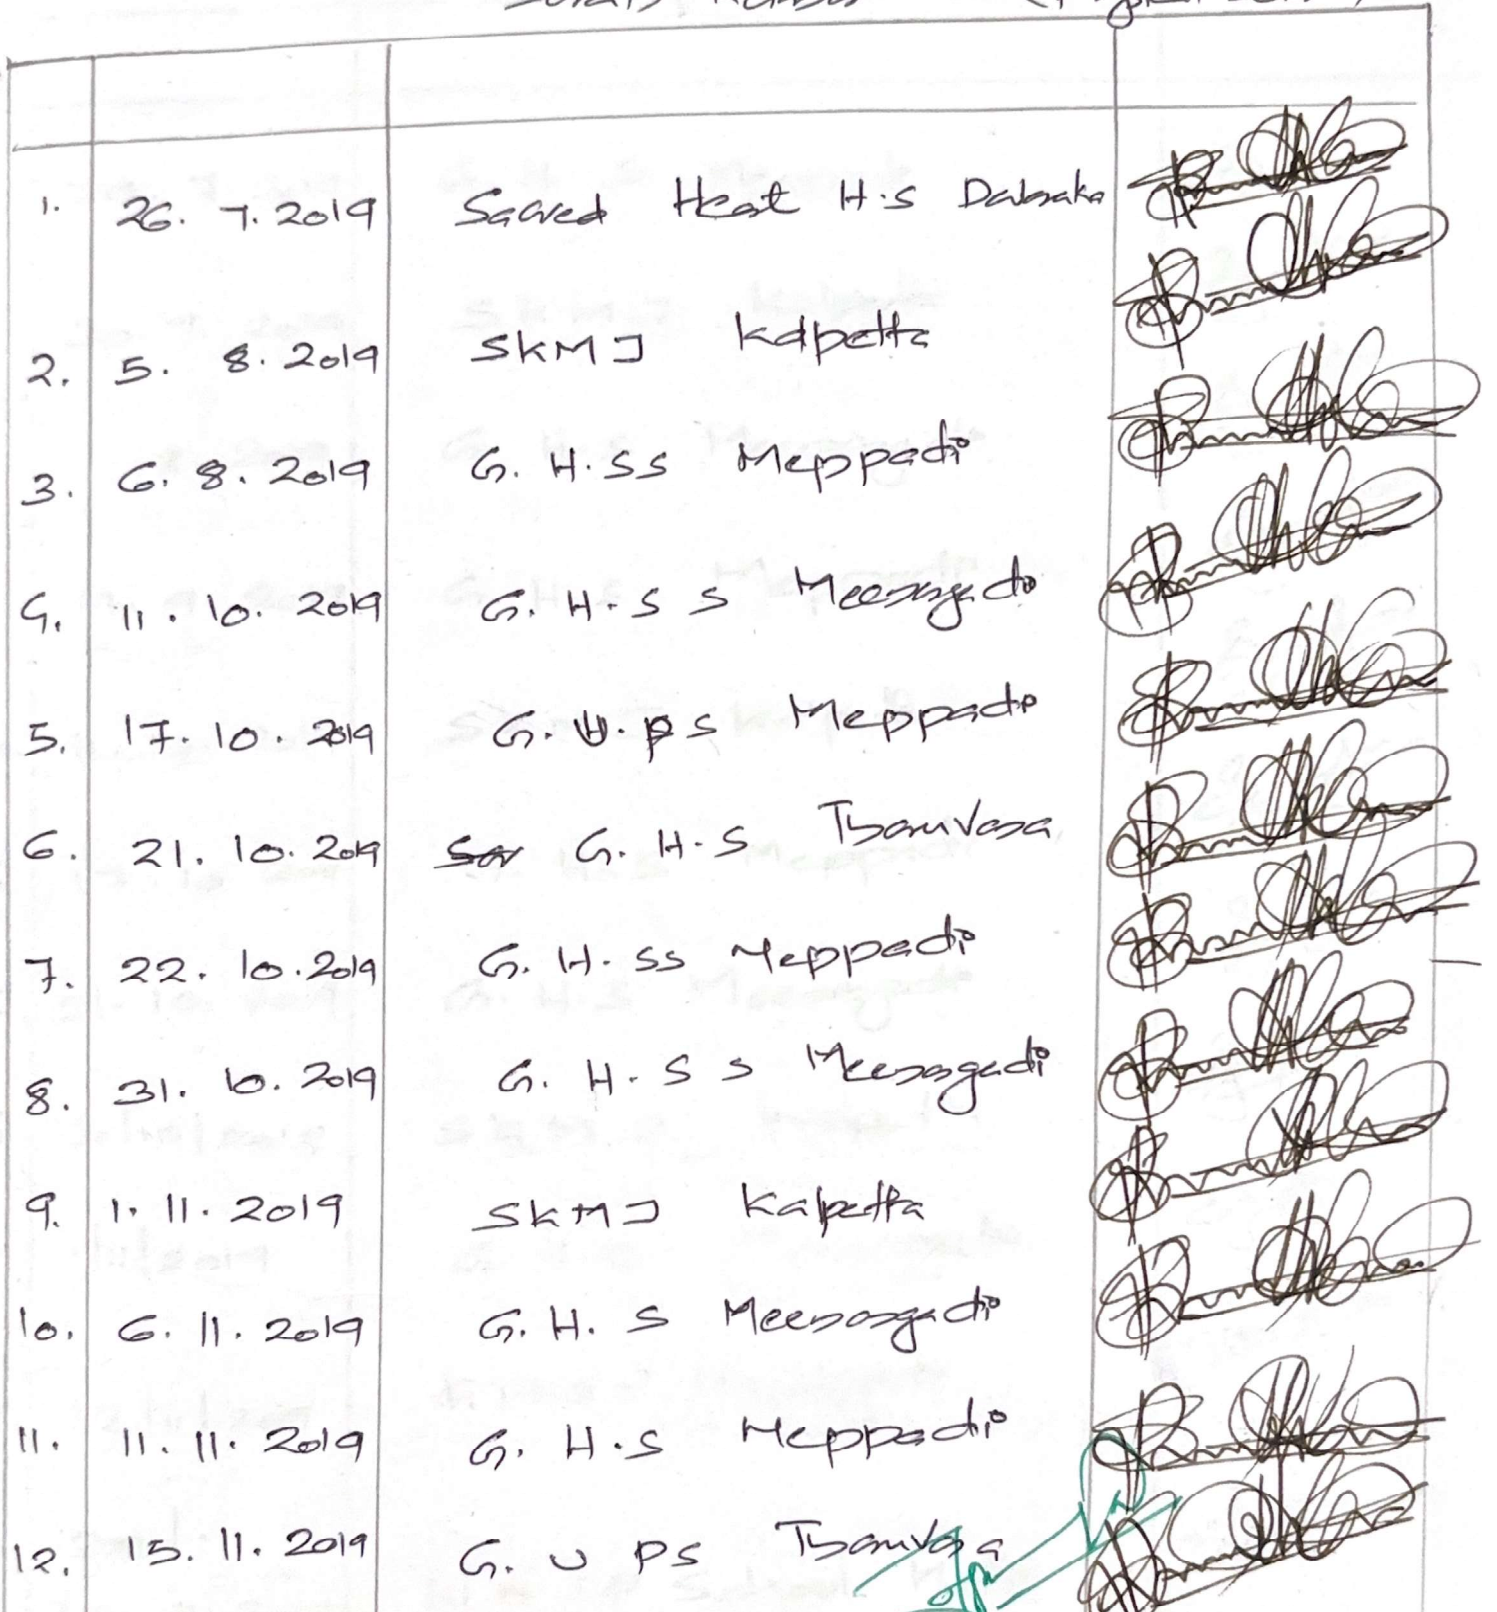 1. 26. 7. 2019 Sacred Heat H.S
2. 5. 8. 2019 SKMJ Kalpetta
3. 6. 8. 2019 G. H. SS Meppadi
4. 11. 10. 2019 G. H. S S Meenangadi
5. 17. 10. 2019 G. U. P S Meppadi
6. 21. 10. 2019 G. H. S
7. 22. 10. 2019 G. H. SS Meppadi
8. 31. 10. 2019 G. H. S S Meenangadi
9. 1. 11. 2019 SKMJ Kalpetta
10. 6. 11. 2019 G. H. S Meenangadi
11. 11. 11. 2019 G. H. S Meppadi
12. 15. 11. 2019 G. U PS